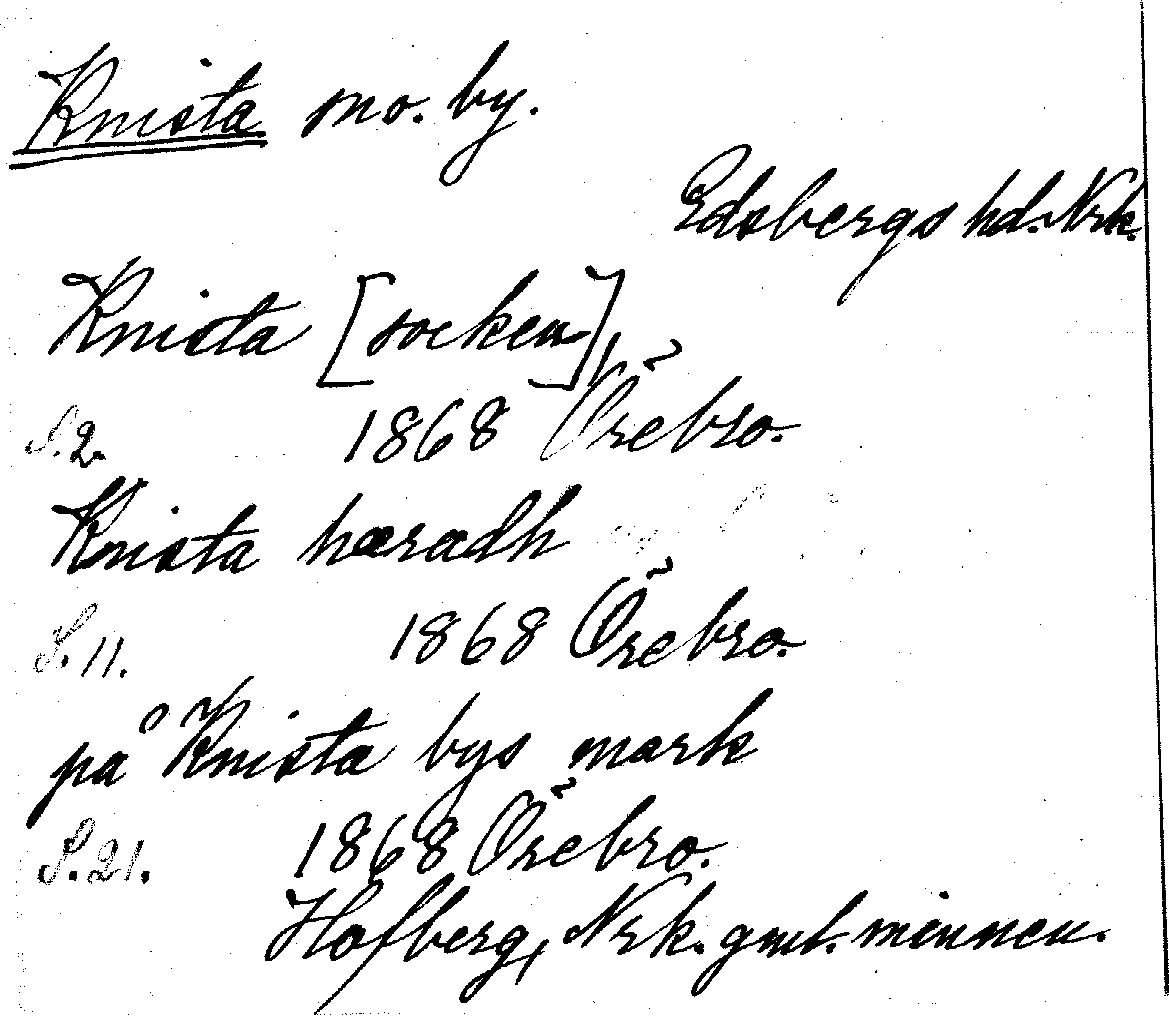 Knista mo. by.
Edsbergs hd. Nrk.
Knista [socken],
S. 2. 1868 Örebro.
Knista hæradh
S. 11. 1868 Örebro.
på Knista bys mark
S. 21. 1868 Örebro.
Hofberg, Nrk. gml. minnen.